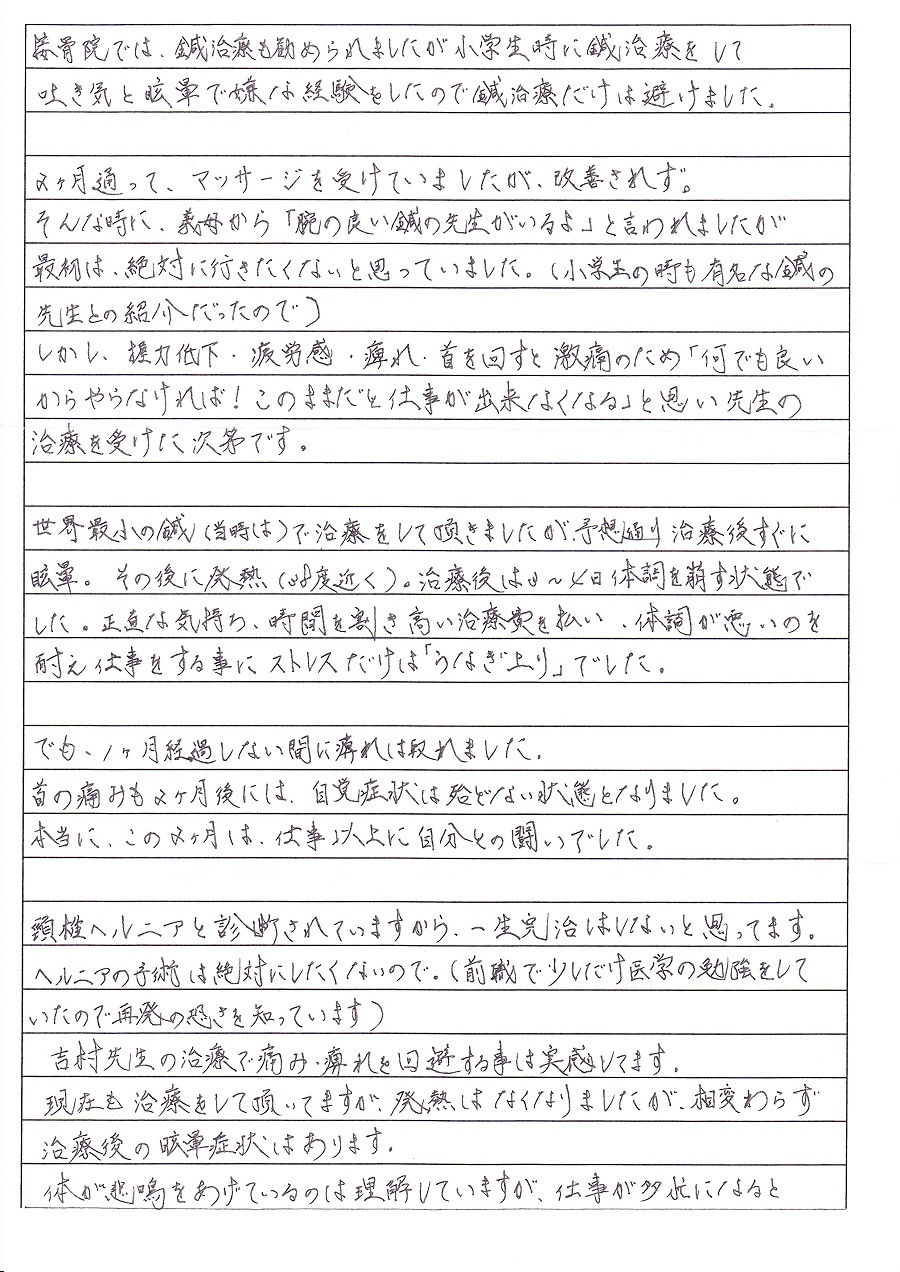 接骨院では、鍼治療も勧められましたが小学生時に鍼治療をして
吐き気と眩暈で嫌な経験をしたので鍼治療だけは避けました。
2ヶ月通って、マッサージを受けていましたが、改善されず。
そんな時に、義母から「腕の良い鍼の先生がいるよ」と言われましたが
最初は、絶対に行きたくないと思っていました。(小学生の時も有名な鍼の
先生との紹介だったので)
しかし、握力低下・疲労感・痺れ・首を回すと激痛のため「何でも良い
からやらなければ!このままだと仕事が出来なくなる」と思い先生の
治療を受けた次第です。
世界最小の鍼(当時は)で治療をして頂きましたが、予想通り治療後すぐに
眩暈。その後に発熱(38度近く)。治療後は3～4日体調を崩す状態で
した。正直な気持ち、時間を割き高い治療費を払い、体調が悪いのを
耐え仕事をする事にストレスだけは「うなぎ上り」でした。
でも、1ヶ月経過しない間に痺れは取れました。
首の痛みも2ヶ月後には、自覚症状は殆どない状態となりました。
本当に、この2ヶ月は、仕事以上に自分との闘いでした。
頸椎ヘルニアと診断されていますから、一生完治はしないと思ってます。
ヘルニアの手術は絶対にしたくないので。(前職で少しだけ医学の勉強をして
いたので再発の恐さを知っています)
吉村先生の治療で痛み・痺れを回避する事は実感してます。
現在も治療をして頂いてますが、発熱はなくなりましたが、相変わらず
治療後の眩暈症状はあります。
体が悲鳴をあげているのは理解していますが、仕事が多忙になると